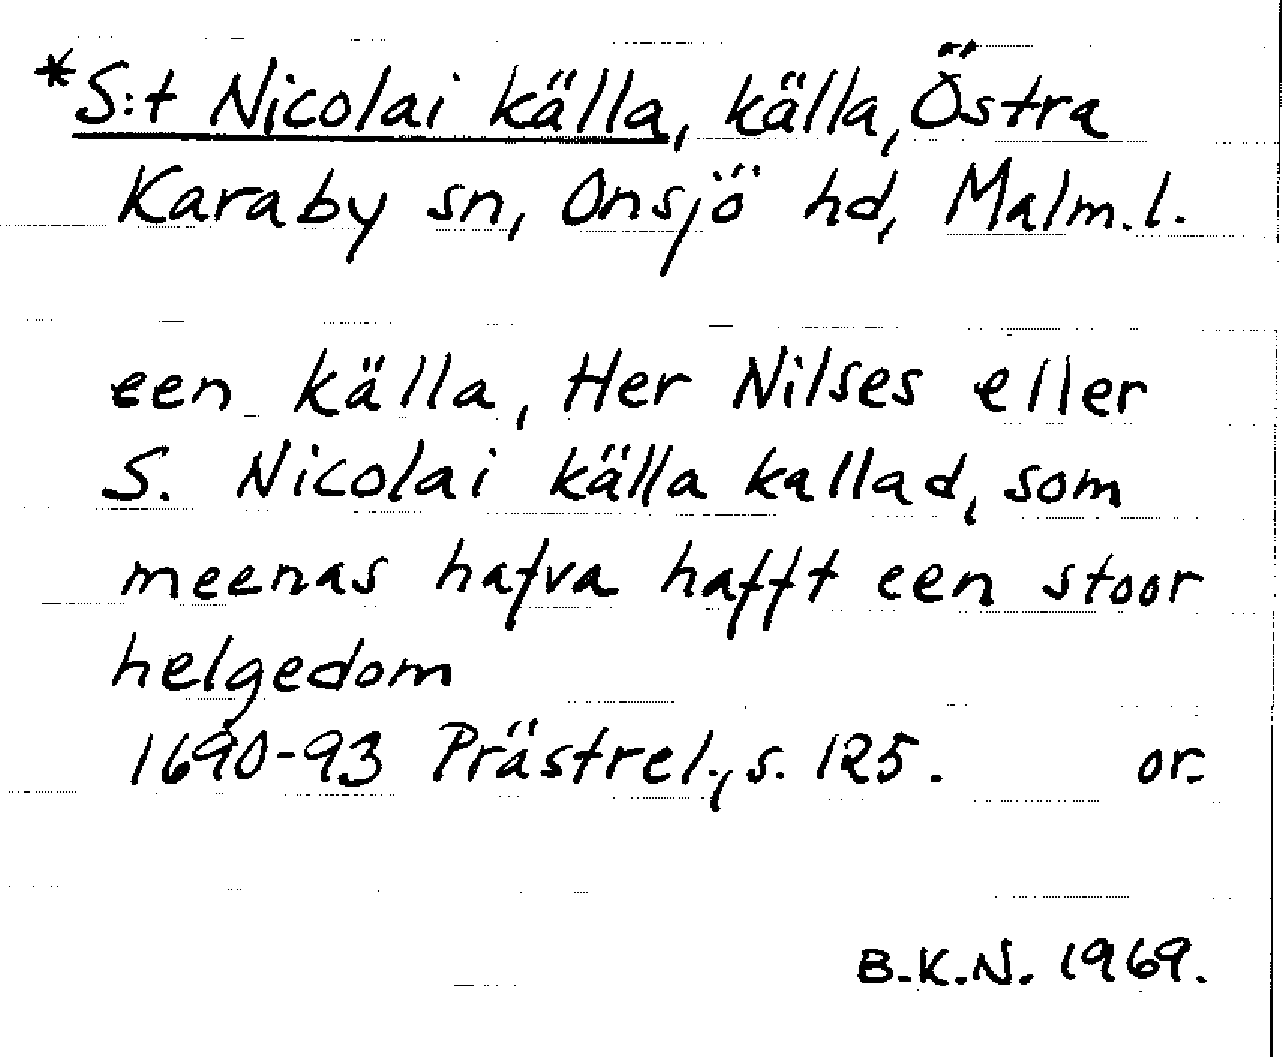 *S:t Nicolai källa, källa, Östra
Karaby sn, Onsjö hd, Malm.l.
een källa, Her Nilses eller
S. Nicolai källa kallad, som
meenas hafva hafft een stoor
helgedom
1690-93 Prästrel., s. 125. or.
B.K.N. 1969.